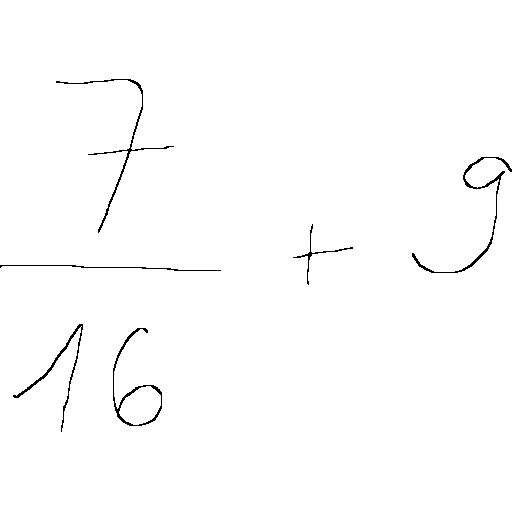 \frac{7}{16} + 9